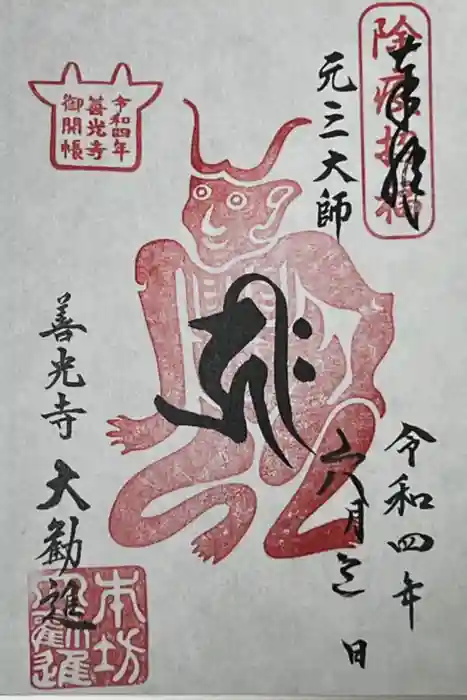 除疫招福
奉拝
元三大師
令和四年
善光寺
御開帳
令和四年
六月 日
善光寺
大勧進
本坊
大勧進